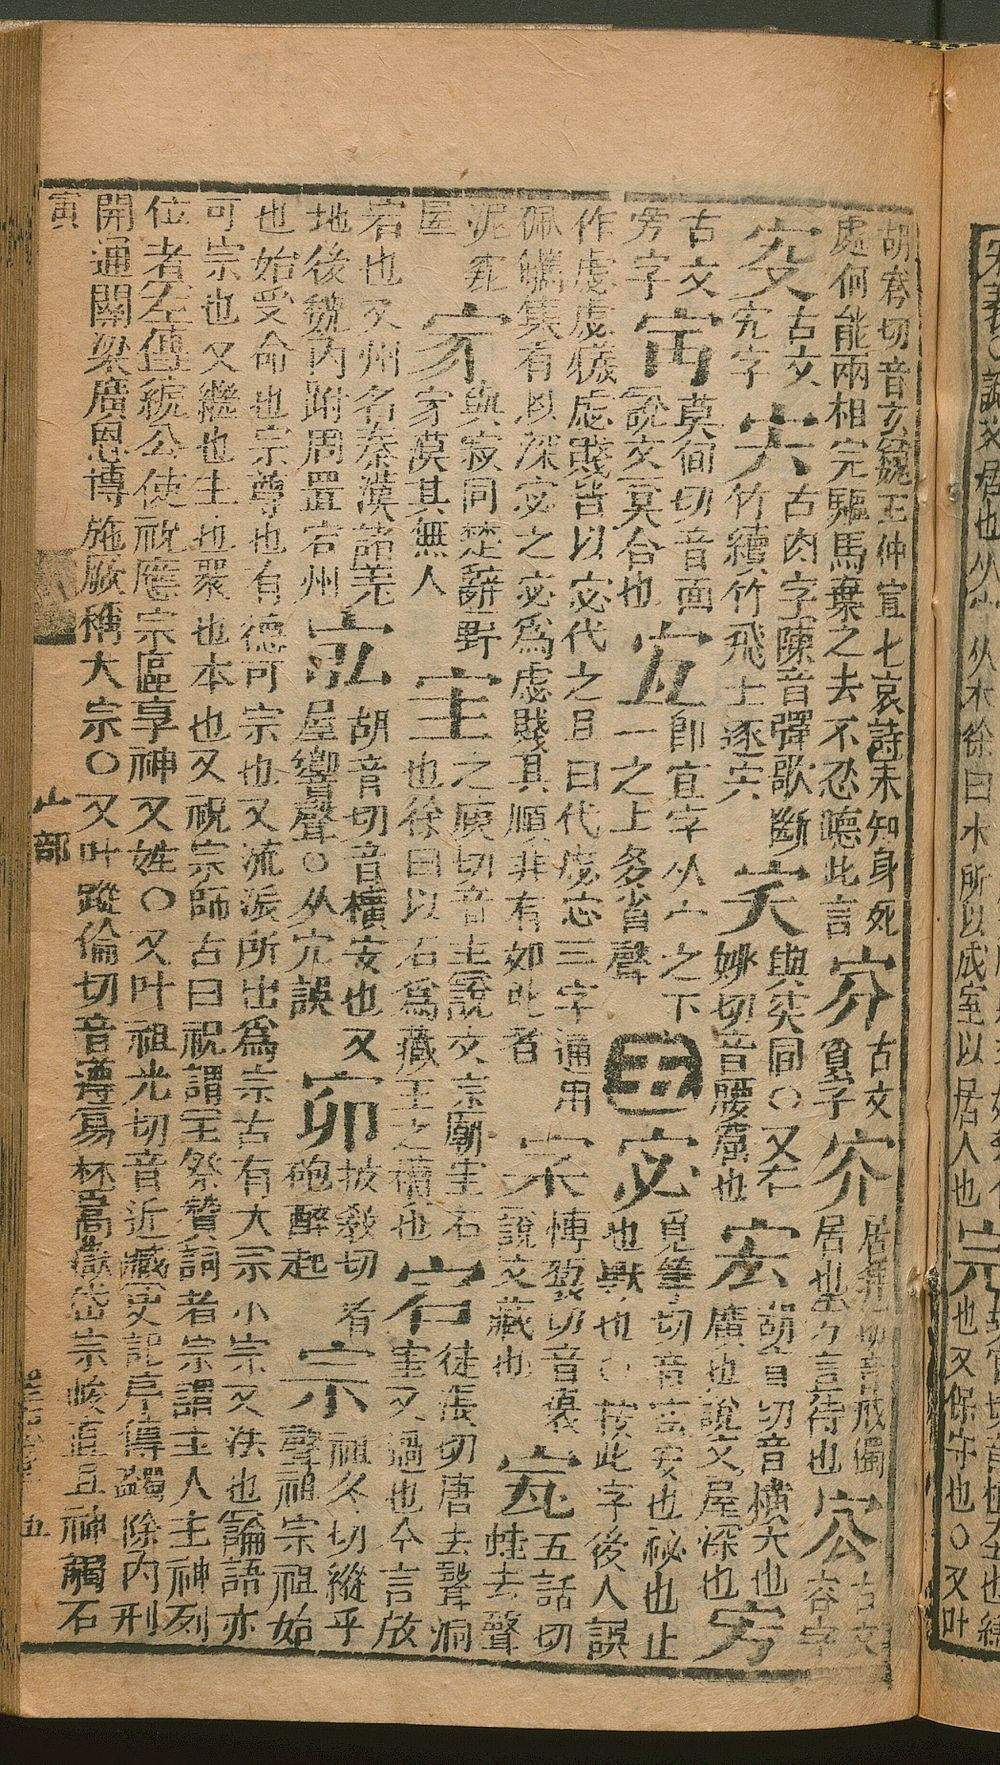 胡君切音玄魏王仲宣七哀詩未知身死
處何能兩相完驅馬棄之去不忍聽此言
穷 古文貧字
㝏 居拜切音戒獨居也又言待也
㝐 古文容字
㝌 古文究字
宍 古肉字陳音彈歌斷竹續竹飛土逐宍
宎 與突同○又伊妙切音腰窟也
宏 胡盲切音橫大也廣也說文屋深也
㝑 古文旁字
莫甸切音面說文冥合也
宜 即宜字从宀之下一之上多省聲
五畫
宓 覓筆切音密安也祕也止也默也○按此字後人誤
作虙虙犧虙賤皆以宓代之且曰代虙忘三字通用
佩觿集有以深宓之宓為虙賤其順非有如此者
宲 博裒切音褒說文藏也
五話切蛙去聲泥窊屋
㝛 與寂同楚辭野㝛漠其無人
宔 之庾切音主說文宗廟宔石也徐曰以石為藏主之櫝也
宕 徒浪切唐去聲洞室又過也今言放
宕也又州名秦漢諸羌地後魏內附周置宕州
宖 胡盲切音橫安也又屋響聲○从穴誤
披教切音砲醉起
宗 祖冬切縱平聲祖宗祖始
也始受命也宗尊也有德可宗也又流派所出為宗古有大宗小宗又法也論語亦
可宗也又繼也主也眾也本也又祝宗師古曰祝謂主祭贊詞者宗謂主人主神列
位者左傳統公使祝應宗區享神又姓○又叶祖光切音近臧史記序傳蠲除內刑
開通關梁廣恩博施厥稱大宗○又叶蹤倫切音遵高嶽岱宗峻直且神觸石
寅
宀部
五